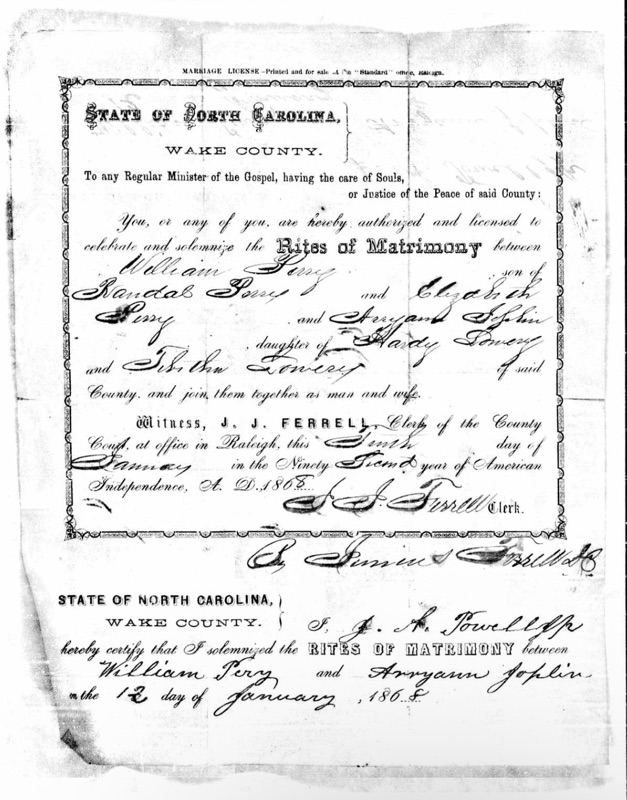 MARRIAGE LICENSE—Printed and for sale at the "Standard" office, Raleigh.
STATE OF NORTH CAROLINA,
WAKE COUNTY.
To any Regular Minister of the Gospel, having the care of Souls,
or Justice of the Peace of said County:
You, or any of you, are hereby authorized and licensed to
celebrate and solemnize the Rites of Matrimony between
William Perry son of
Randal Perry and Elizabeth
Perry and Arryann Joplin
daughter of Hardy Lowery
and Lowery of said
County, and join them together as man and wife.
Witness, J. J. FERRELL, Clerk of the County
Court, at office in Raleigh, this Tenth day of
January in the Ninety Second year of American
Independence, A. D. 1868
J. J. Ferrell Clerk.
By Ferrell DC
STATE OF NORTH CAROLINA,
WAKE COUNTY. I, J. A. Powell JP
hereby certify that I solemnized the RITES OF MATRIMONY between
William Pery and Arryann Joplin
on the 12 day of January, 1868